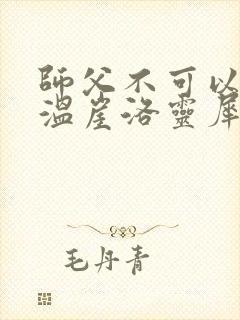 師父不可以
溫崖洛靈犀
毛丹青